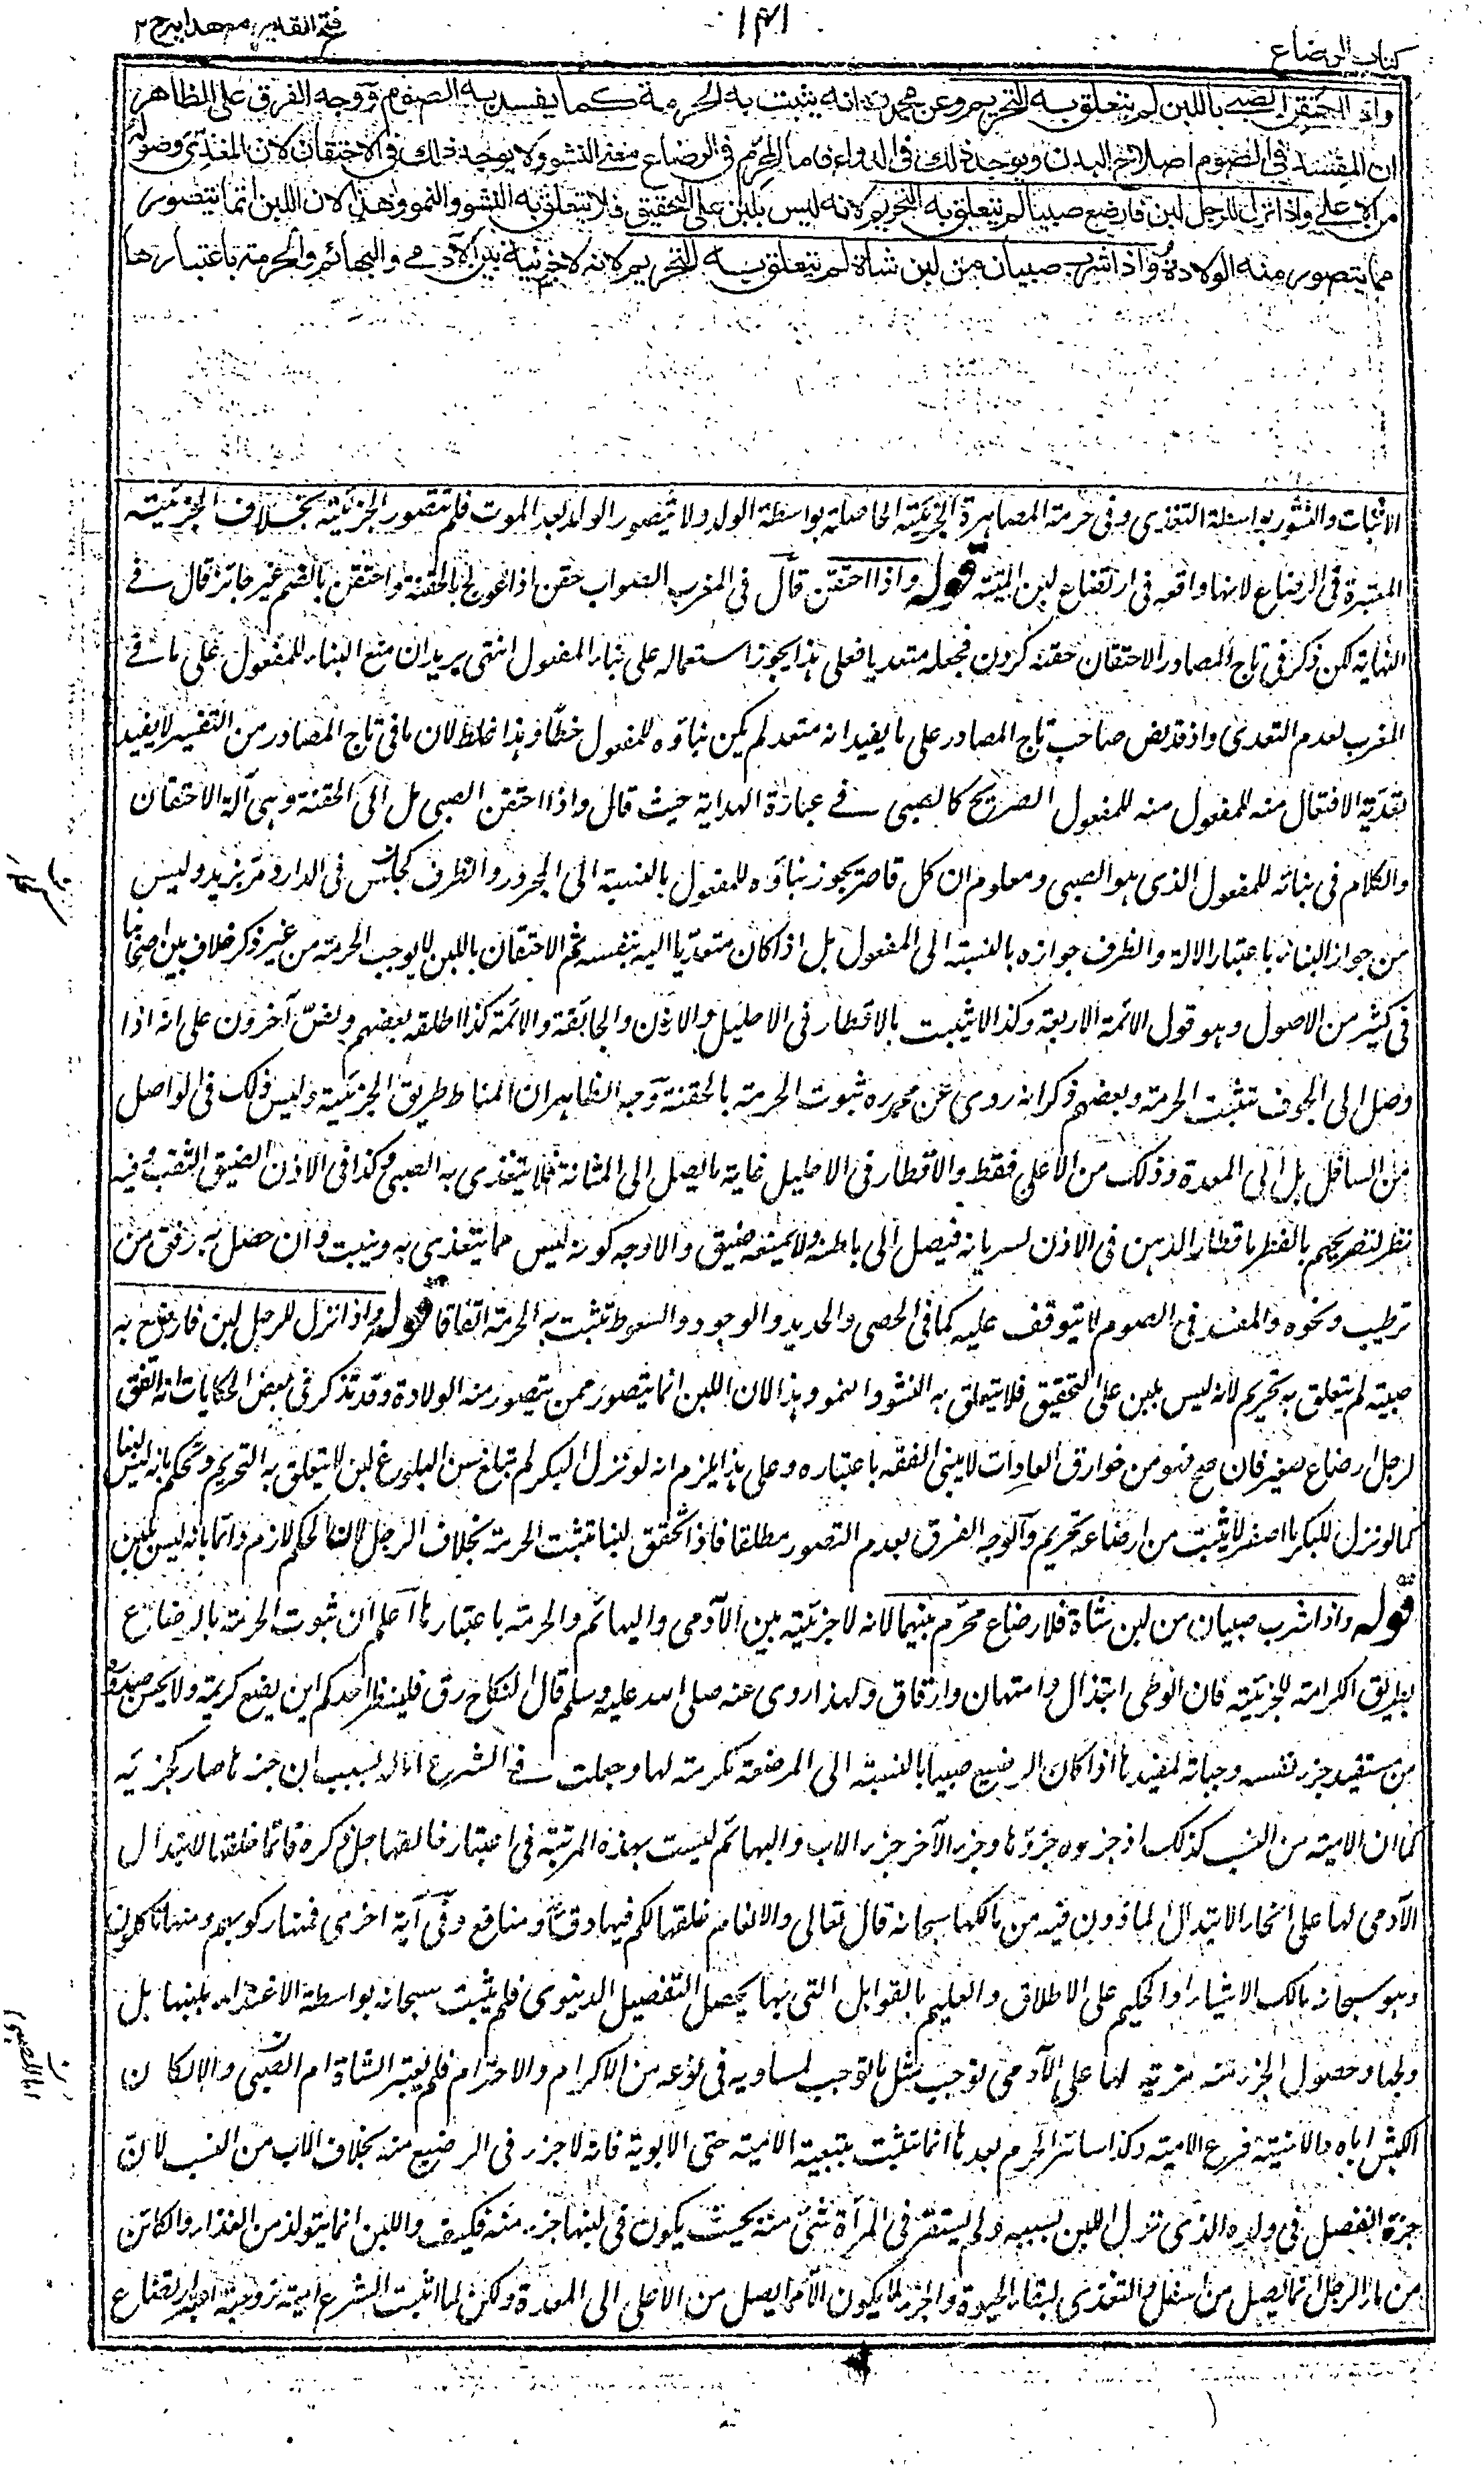 كتاب الرضاع
١٤١
فتح القدير مع هدايه ج ٢
واذا احتقن الصبي باللبن لم يتعلق به التحريم وعن محمد انه يثبت به الحرمة كما يفسد به الصوم ووجه الفرق على الظاهر
ان المفسد في الصوم اصلاح البدن ويوجد ذلك في الدواء فاما المحرم في الرضاع معنى النشو ولا يوجد ذلك في الاحتقان لان المغذي وصوله
من الاعلى واذا نزل للرجل لبن فارضع صبيا لم يتعلق به التحريم لانه ليس بلبن على التحقيق فلا يتعلق به النشو والنمو وهذا لان اللبن انما يتصور
مما يتصور منه الولادة واذا شرب صبيان من لبن شاة لم يتعلق به التحريم لانه لا جزئية بين الآدمي والبهائم والحرمة باعتبارها
الاثبات والنشور بواسطة التغذي وفي حرمة المصاهرة الجزئية الحاصلة بواسطة الولد ولا يتصور الولد بعد الموت فلم تتصور الجزئية بخلاف الجزئية
المعتبرة في الرضاع لانها واقعة في ارتضاع لبن الميتة قوله واذا احتقن قال في المغرب الصواب حقن اذا عولج بالحقنة واحتقن بالضم غير جائز قال في
النهاية لكن ذكر في تاج المصادر الاحتقان حقنه كردن فجعله متعديا فعلى هذا يجوز استعماله على بناء المفعول انتهى يريد ان منع البناء للمفعول على ما في
المغرب لعدم التعدي واذ قد نص صاحب تاج المصادر على ما يفيد انه متعد لم يكن بناؤه للمفعول خطأ وهذا غلط لان ما في تاج المصادر من التفسير لا يفيد
تعدية الافتعال منه للمفعول منه للمفعول الصريح كالصبي في عبارة الهداية حيث قال واذا احتقن الصبي بل الى الحقنة وهي آلة الاحتقان
والكلام في بنائه للمفعول الذي هو الصبي ومعلوم ان كل قاصر يجوز بناؤه للمفعول بالنسبة الى المجرور والظرف كجلس في الدار ومر بزيد وليس
من جواز البناء باعتبار الالة والظرف جوازه بالنسبة الى المفعول بل اذا كان متعديا اليه بنفسه ثم الاحتقان باللبن لا يوجب الحرمة من غير ذكر خلاف بين اصحابنا
في كثير من الاصول وهو قول الائمة الاربعة وكذا لا يثبت بالاقطار في الاحليل والاذن والجائفة والآمة كذا اطلقه بعضهم ونص آخرون على انه اذا
وصل الى الجوف تثبت الحرمة وبعضهم ذكر انه روى عن محمد ره ثبوت الحرمة بالحقنة وجه الظاهر ان المناط طريق الجزئية وليس ذلك في الواصل
من السافل بل الى المعدة وذلك من الاعلى فقط والاقطار في الاحليل غاية ما يصل الى المثانة فلا يتغذى به الصبي وكذا في الاذن لضيق الثقب وفيه
نظر لتصريحهم بالفطر باقطار الدهن في الاذن لسريانه فيصل الى باطنه ولا يمنعه ضيق والاوجه كونه ليس مما يتغذى به وينبت وان حصل به رفق من
ترطيب ونحوه والمفسد في الصوم لا يتوقف عليه كما في الحصى والحديد والوجور والسعوط تثبت به الحرمة اتفاقا قوله واذا نزل للرجل لبن فارضع به
صبية لم يتعلق به تحريم لانه ليس بلبن على التحقيق فلا يتعلق به النشو والنمو وهذا لان اللبن انما يتصور ممن يتصور منه الولادة وقد تذكر في بعض الحكايات انه اتفق
لرجل ارضاع صغير فان صح فهو من خوارق العادات لا يبنى الفقه باعتباره وعلى هذا يلزم انه لو نزل للبكر لم تبلغ سن البلوغ لبن لا يتعلق به التحريم ونحكم بانه ليس لبنا
كما لو نزل للبكر ماء اصفر لا يثبت من ارضاعه تحريم والوجه الفرق بعدم التصور مطلقا فاذا تحقق لبنا تثبت الحرمة بخلاف الرجل لان الحكم لازم دائما بانه ليس بلبن
قوله واذا شرب صبيان من لبن شاة فلا رضاع محرم بينهما لانه لا جزئية بين الآدمي والبهائم والحرمة باعتبارها اعلم ان ثبوت الحرمة بالرضاع
بطريق الكرامة للجزئية فان الوطي ابتذال وامتهان وارقاق ولهذا روى عنه صلى الله عليه وسلم قال النكاح رق فلينظر احدكم اين يضع كريمته ولا يحسن صدوره
من مستفيد جزء نفسه وحياته لمفيدها اذا كان الرضيع صبيا بالنسبة الى المرضعة تكرمة لها وجعلت في الشرع اما له بسبب ان جزءها صار كجزئه
كما ان الامية من النسب كذلك اذ جزوه جزؤها وجزء الآخر جزء الاب والبهائم ليست بهذه المرتبة في اعتبار خالقها جل ذكره فانما خلقها لابتذال
الآدمي لها على انحاء الابتذال الماذون فيه من مالكها سبحانه قال تعالى والانعام خلقها لكم فيها دفء ومنافع وفي آية اخرى فمنها ركوبهم ومنها تاكلون
وهو سبحانه مالك الاشياء والحكيم على الاطلاق والعليم بالقوابل التي بها يحصل التفضيل الدنيوي فلم يثبت سبحانه بواسطة الاغتذاء بلبنها بل
ولحمها وحصول الجزء منه مزية لها على الآدمي توجب مثل ما توجب لمساويه في نوعه من الاكرام والاحترام فلم يعتبر الشاة ام الصبي والا لكان
الكبش اباه والاختية فرع الامية وكذا سائر الحرم بعدها انما تثبت بتبعية الامية حتى الابوية فانه لا جزء في الرضيع منه بخلاف الاب من النسب لان
جزءه انفصل في ولده الذي نزل اللبن بسببه ولم يستقر في المرأة شئ منه بحيث يكون في لبنها جزء منه فكيف واللبن انما يتولد من الغذاء والكائن
من ماء الرجل انما يصل من اسفل والتغذي لبقاء الحيوة والجزء لا يكون الا مما يصل من الاعلى الى المعدة ولكن لما اثبت الشرع امية زوجته